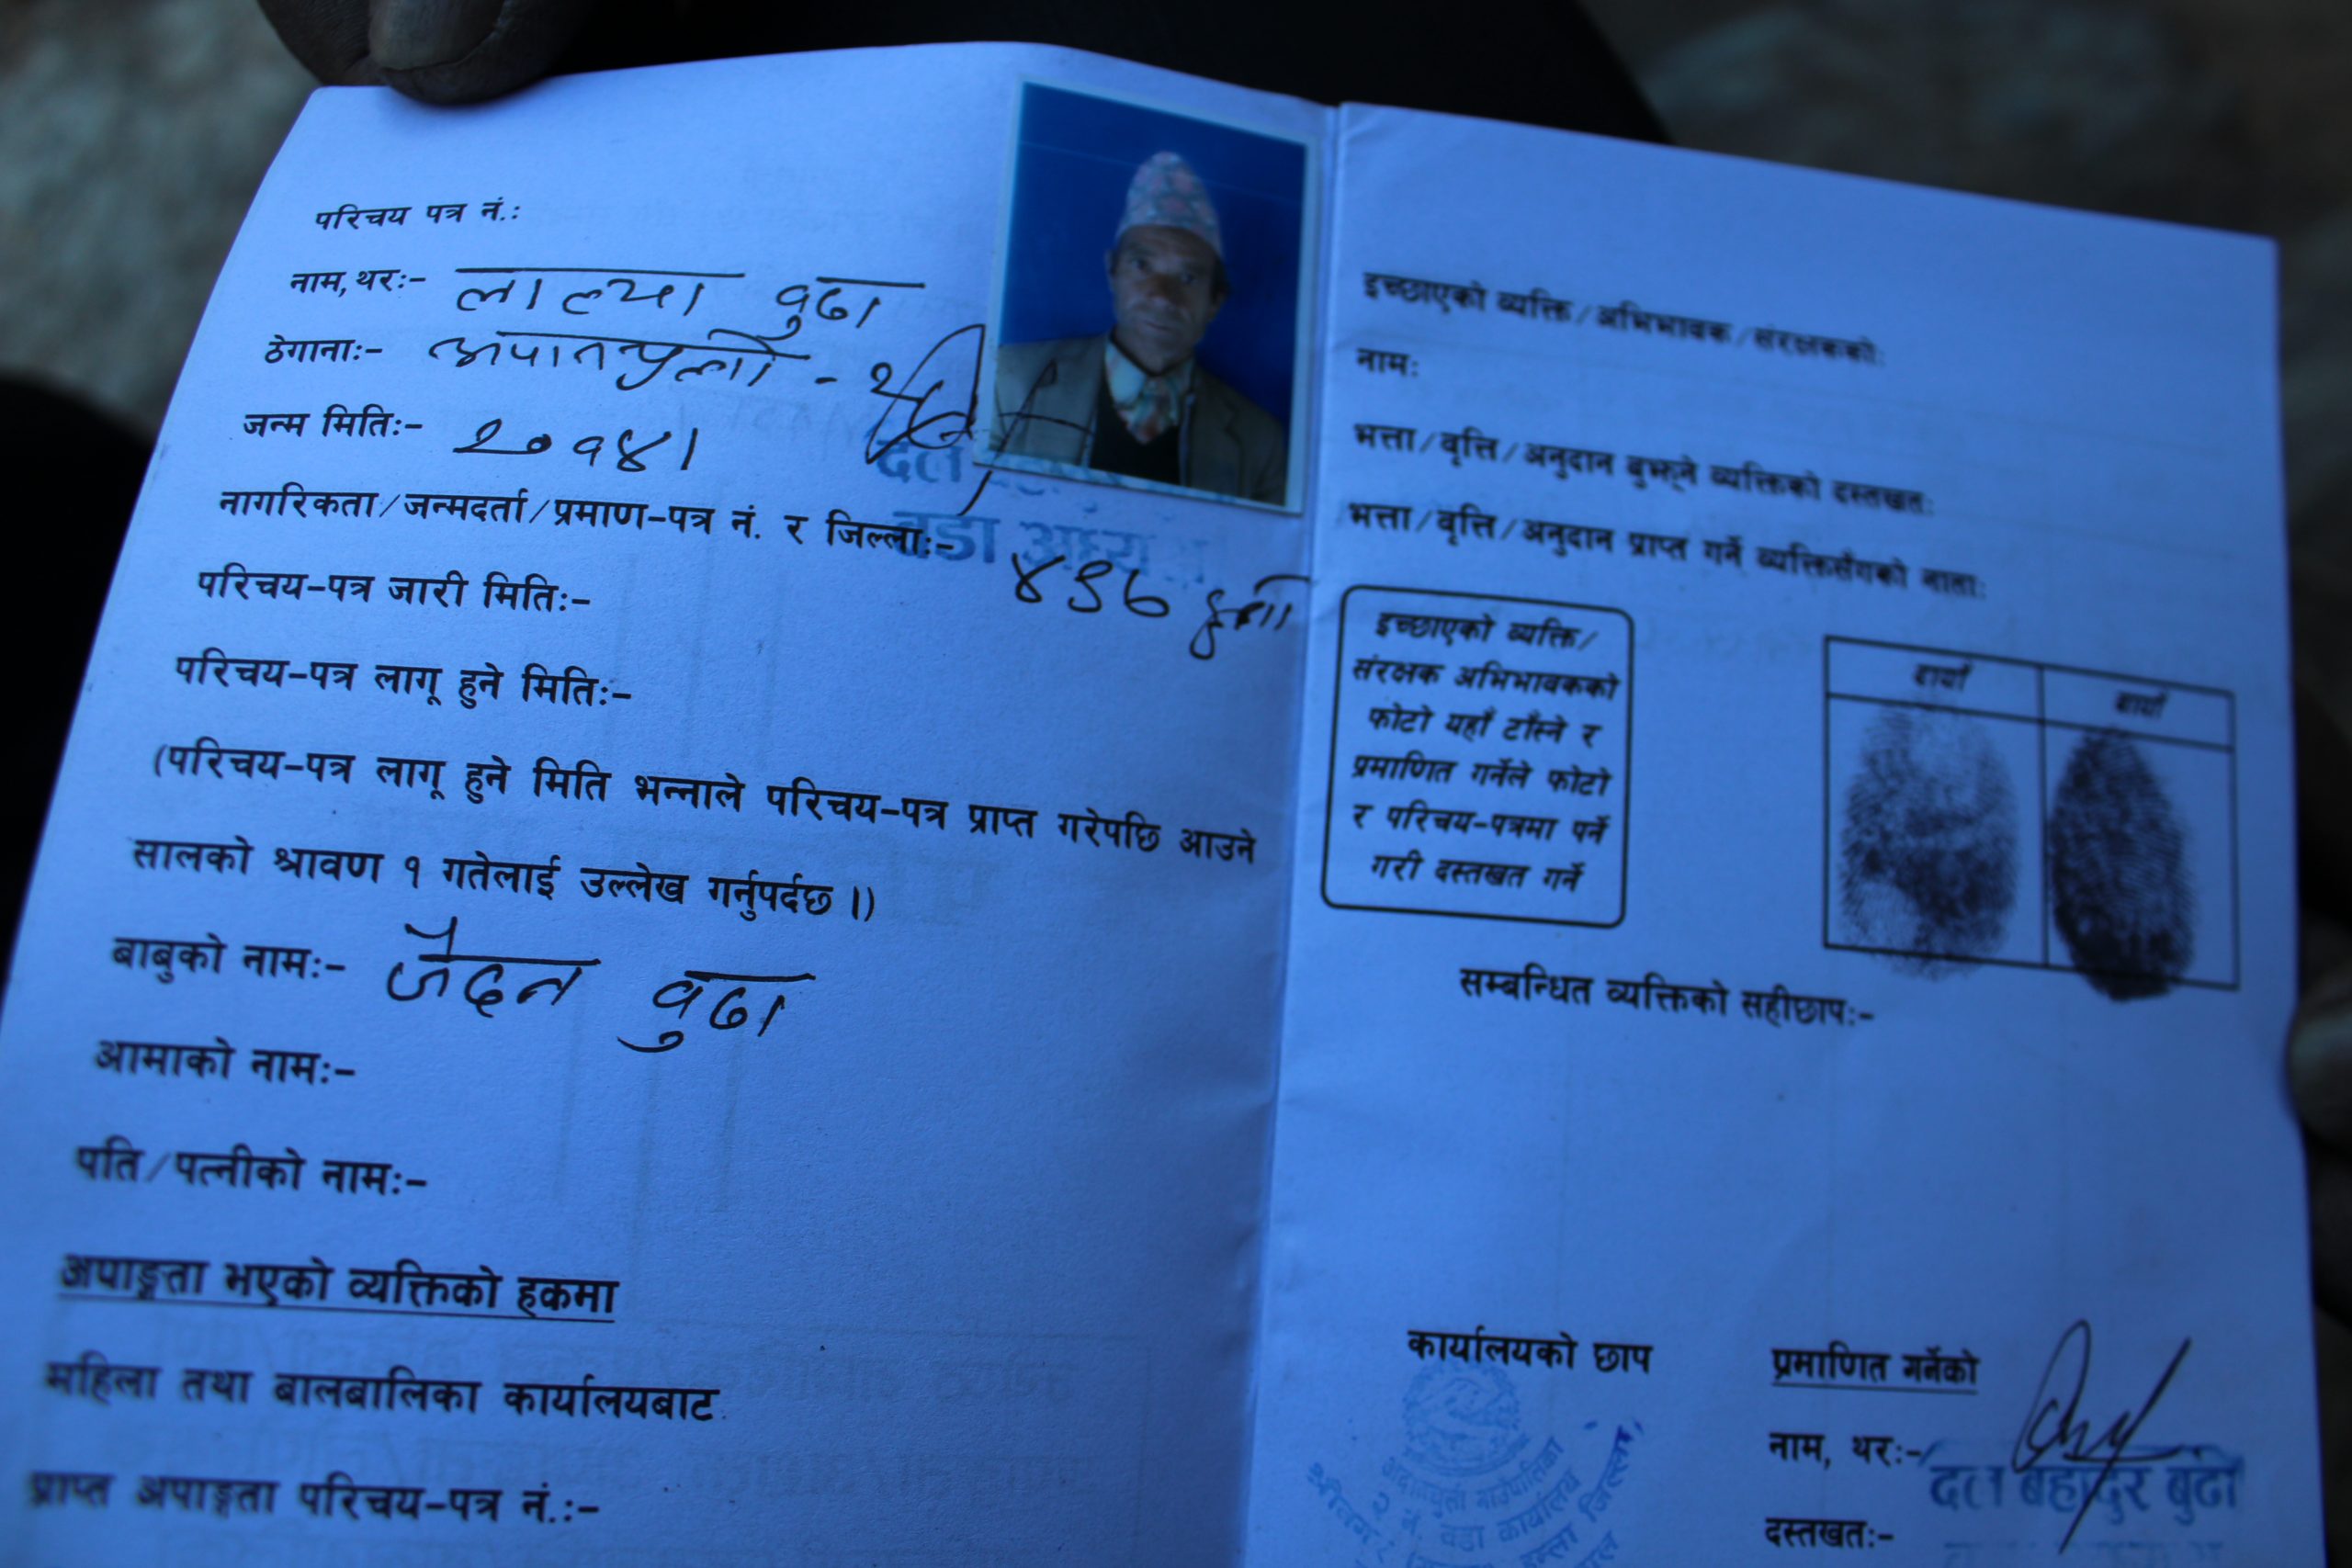 परिचय पत्र नं.:
नाम, थरः- लाल्या वुढा
ठेगानाः-
जन्म मितिः- २०१४।
नागरिकता/जन्मदर्ता/प्रमाण-पत्र नं. र जिल्लाः-
वडा अध्यक्ष
परिचय-पत्र जारी मितिः-
परिचय-पत्र लागू हुने मितिः-
(परिचय-पत्र लागू हुने मिति भन्नाले परिचय-पत्र प्राप्त गरेपछि आउने
सालको श्रावण १ गतेलाई उल्लेख गर्नुपर्दछ ।)
बाबुको नामः- जैदन वुढा
आमाको नामः-
पति/पत्नीको नामः-
अपाङ्गता भएको व्यक्तिको हकमा
महिला तथा बालबालिका कार्यालयबाट
प्राप्त अपाङ्गता परिचय-पत्र नं.:-
इच्छाएको व्यक्ति/अभिभावक/संरक्षकको:
नामः
भत्ता/वृत्ति/अनुदान बुझ्ने व्यक्तिको दस्तखतः
भत्ता/वृत्ति/अनुदान प्राप्त गर्ने व्यक्तिसँगको नाताः
इच्छाएको व्यक्ति/
संरक्षक अभिभावकको
फोटो यहाँ टाँस्ने र
प्रमाणित गर्नेले फोटो
र परिचय-पत्रमा पर्ने
गरी दस्तखत गर्ने
दायाँ
बायाँ
सम्बन्धित व्यक्तिको सहीछापः-
कार्यालयको छाप
२ नं. वडा कार्यालय
प्रमाणित गर्नेको
नाम, थरः-
दल बहादुर बुढा
दस्तखतः-